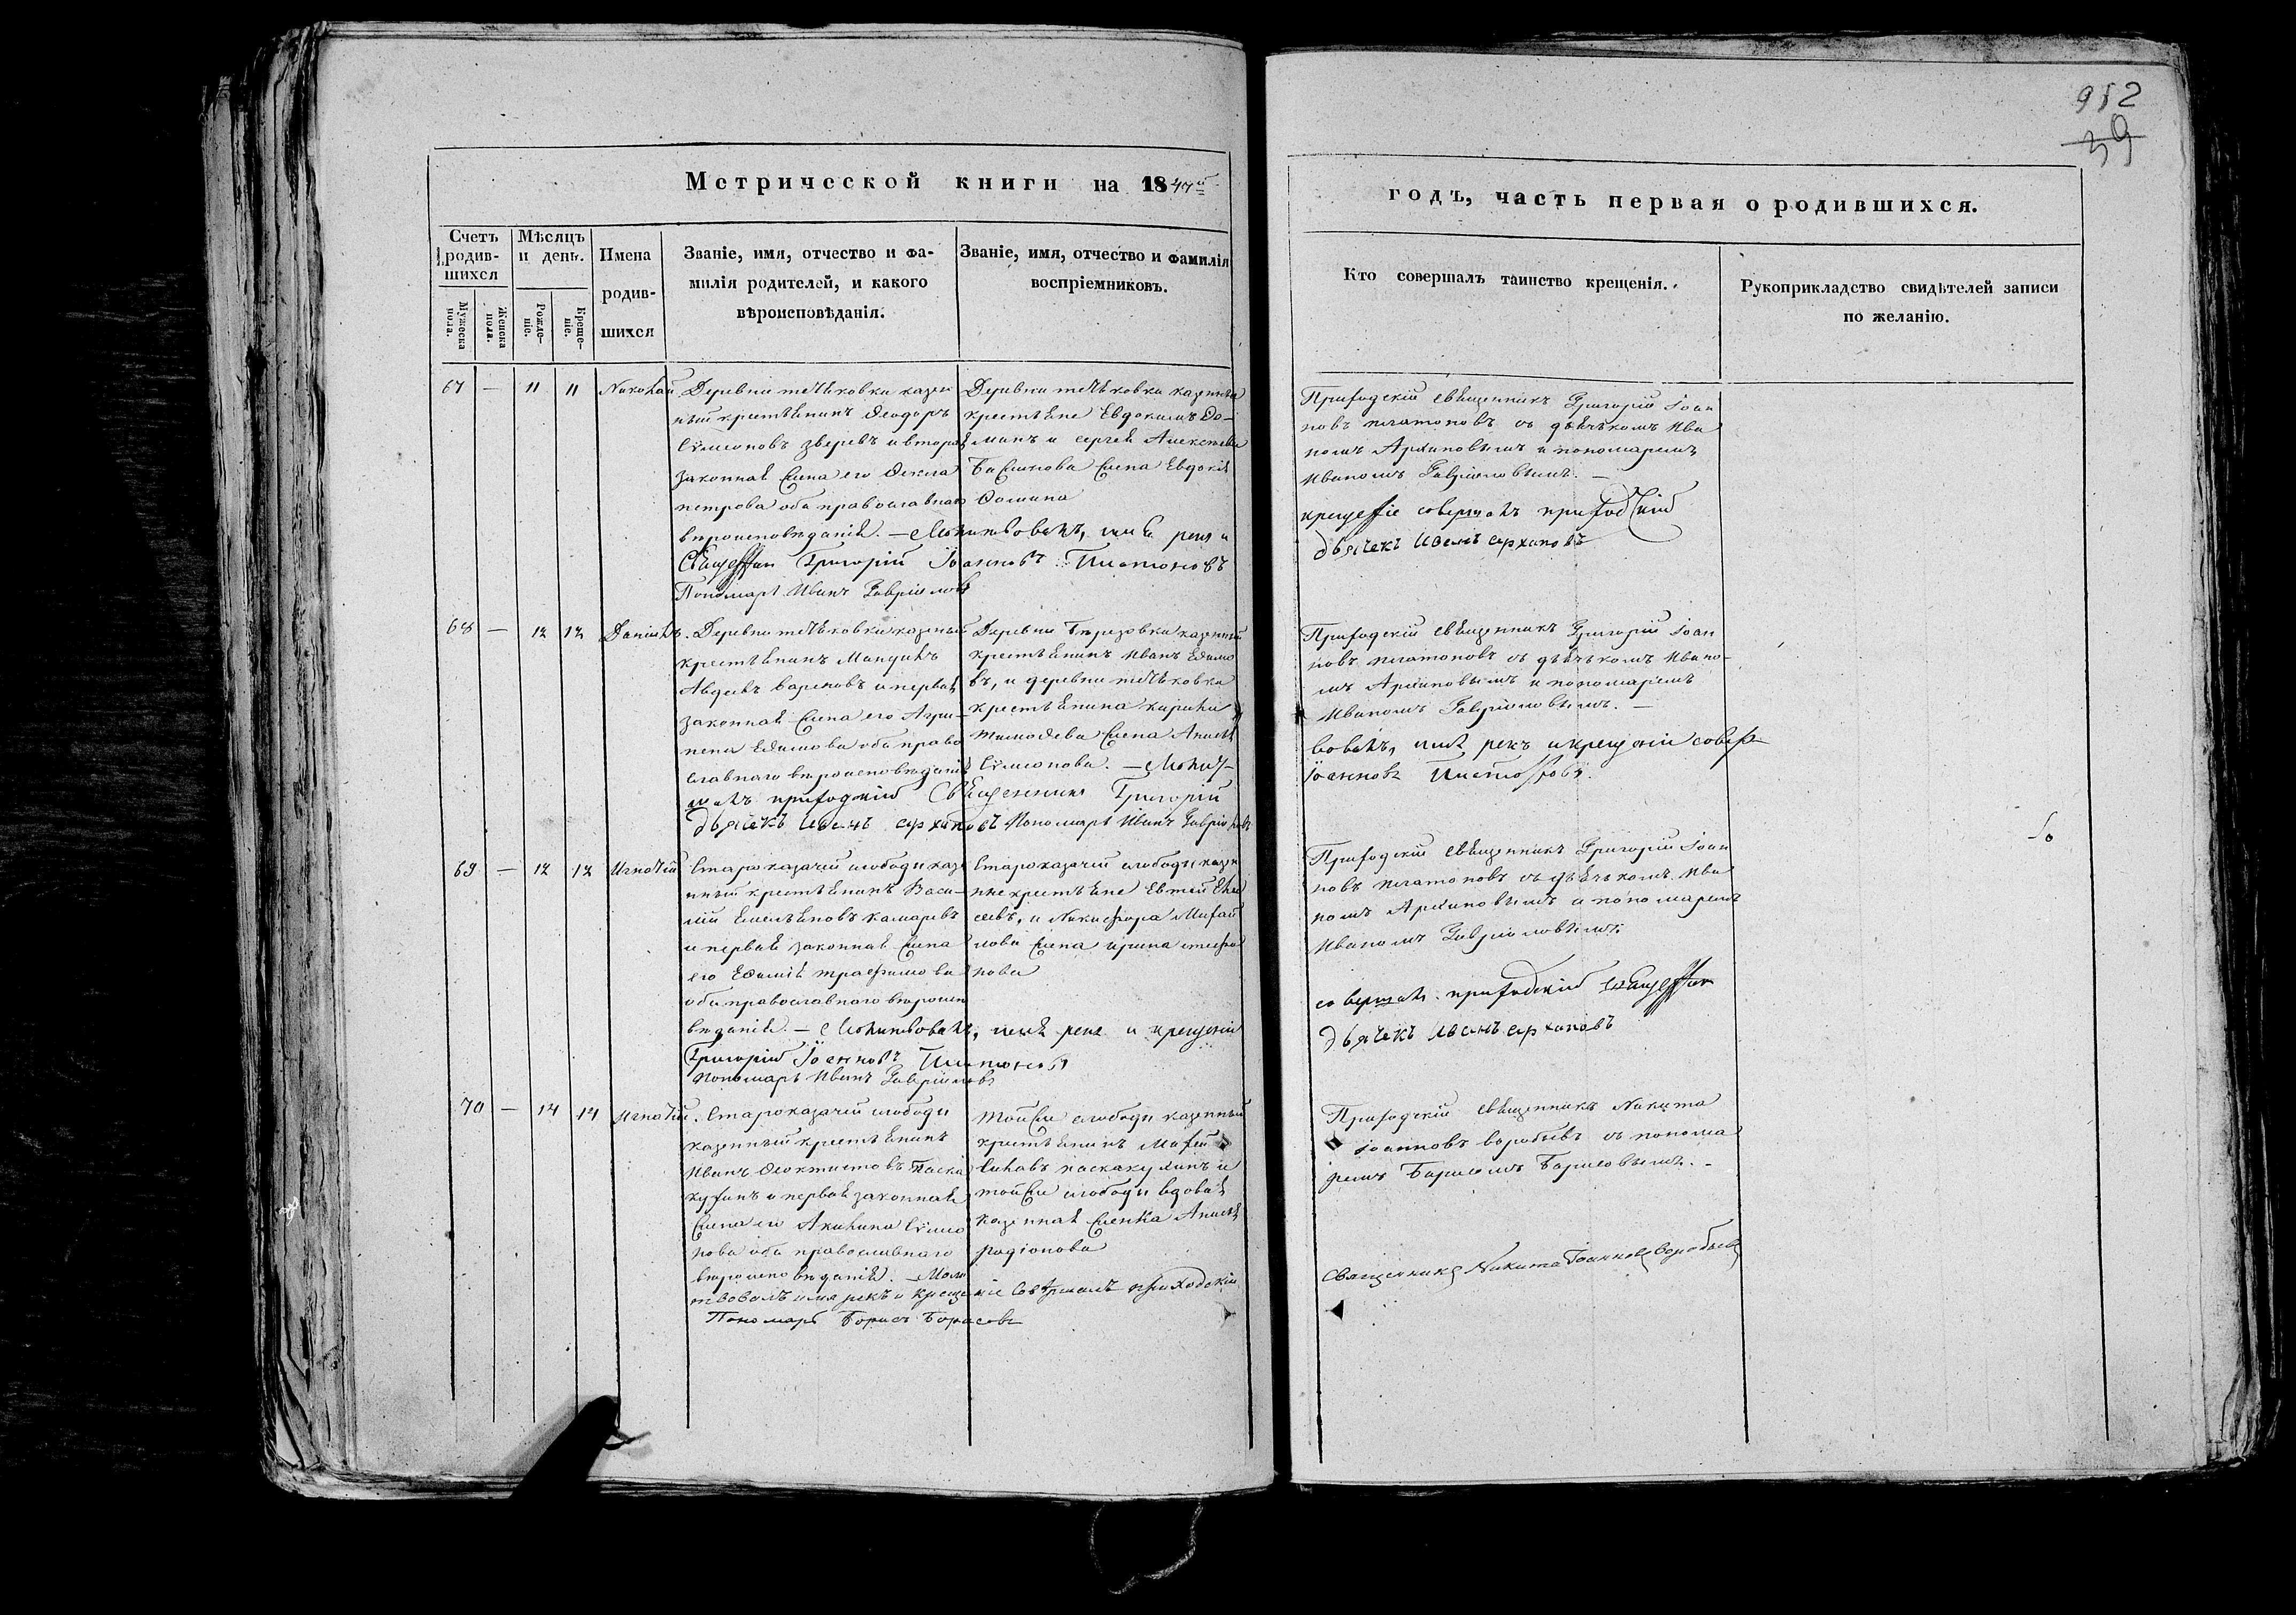 952
39
Метрической книги на 1847й
годъ, часть первая о родившихся.
Счетъ родив-шихся
Мужеска пола.
Женска пола.
Мѣсяцъ и день.
Рожде-ніе.
Креще-ніе.
Имена родив-шихся
Званіе, имя, отчество и фа-
милія родителей, и какого
вѣроисповѣданія.
Званіе, имя, отчество и фамилія
воспріемниковъ.
Кто совершалъ таинство крещенія.
Рукоприкладство свидѣтелей записи
по желанію.
67 — 11 11 Николай
Деревни казен
ный крестьянинъ Ѳеодоръ
Сѵмеоновъ Зверевъ и вторая
законная жена его Ѳекла
Петрова оба православнаго
вѣроисповѣданія. — Молитвовалъ, имя рекъ и
Священникъ Григорій Іоанновъ Платоновъ
Пономарь Иванъ Гавріиловъ
Деревни казенные
крестьяне Евдокимъ Ѳо-
минъ и Сергея Алексеева
жена Евдокія
Ѳомина
Приходскій священникъ Григорій Іоан
новъ Платоновъ съ дьячкомъ Ива
номъ Архиповымъ и пономаремъ
Иваномъ Гавріиловымъ. —
крещеніе совершалъ приходскій
дьячекъ Иванъ Архиповъ
68 — 12 12 Даніилъ
Деревни казеный
крестьянинъ
Авдеевъ и первая
законная жена его Агри-
пена Ефимова оба право
славнаго вѣроисповѣданія
Деревни Березовки казенный
крестьянинъ Иванъ Ефимо
въ, и деревни
крестьянина Кирила
Тимофева жена Анисія
Сѵмеонова. — Молит-
шалъ приходскій Священникъ Григорій
дьячекъ Иванъ Архиповъ Пономарь Иванъ Гавріиловъ
Приходскій священникъ Григорій Іоан
новъ Платоновъ съ дьячкомъ Ивано-
мъ Архиповымъ и пономаремъ
Иваномъ Гавріиловымъ. —
вовалъ, имя рекъ и крещеніе совер-
Іоанновъ Платоновъ.
69 — 12 12 Игнатій
Староказачей слободы казе
нный крестьянинъ Васи-
лій Емельяновъ Камаревъ
и первая законная жена
его Ефимія Трафимова
оба православнаго вѣроиспо
вѣданія. — Молитвовалъ, имя рекъ и крещеніе
Григорій Іоанновъ Платоновъ
Пономарь Иванъ Гавріиловъ
Староказачей слободы казен
ные крестьяне Евтей
и Никифора Михай
лова жена Ирина Стефа
нова
Приходскій священникъ Григорій Іоан
новъ Платоновъ съ дьячкомъ Ива
номъ Архиповымъ и пономаремъ
Иваномъ Гавріиловымъ.
совершалъ приходскій священникъ
дьячекъ Иванъ Архиповъ
70 — 14 14 Игнатій
Староказачей слободы
казенный крестьянинъ
Иванъ Ѳеоктистовъ Паска
кухинъ и первая законная
жена его Акилина Сѵмео
нова оба православнаго
вѣроисповѣданія. — Моли
твовалъ имя рекъ и креще ніе совершалъ приходскій
Пономарь Борисъ Борисовъ
Той же слободы казенный
крестьянинъ Михей
и
той же слободы вдовая
казенная женка Анисія
Радіонова
Приходскій священникъ Никита
Іоанновъ Воробьевъ съ понома
ремъ Борисомъ Борисовымъ. -
Священникъ Никита Іоанновъ Воробьевъ